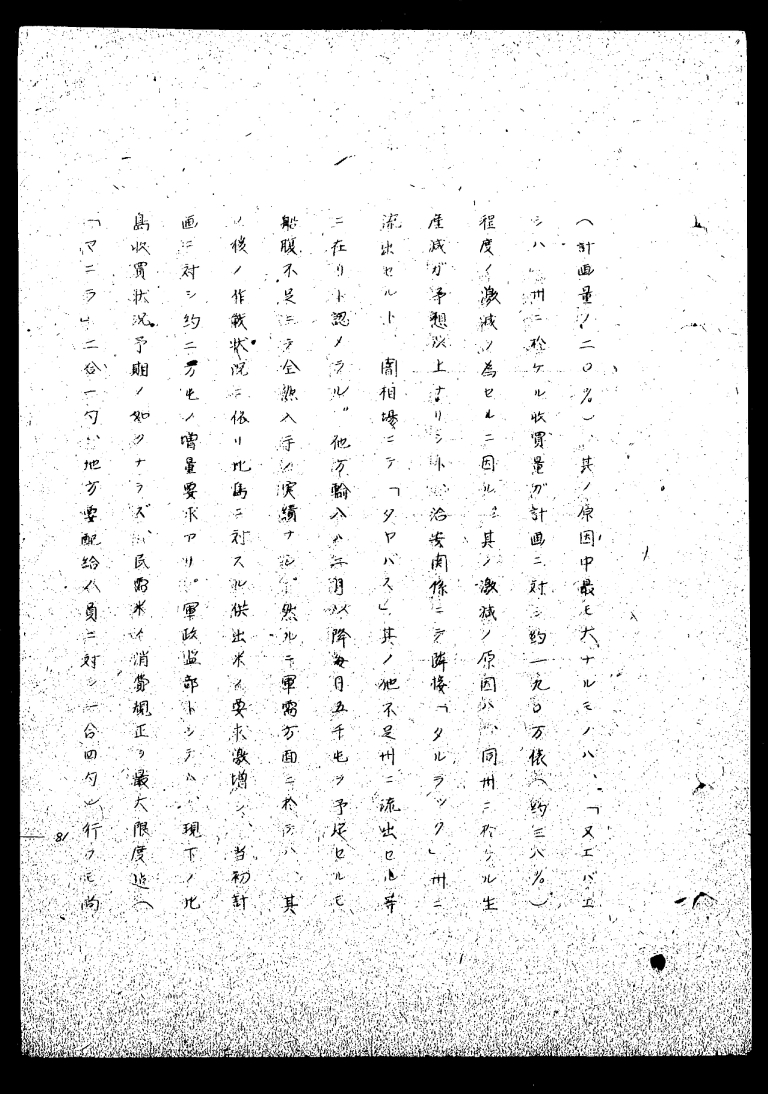 (計画量ノ二〇%)、其ノ原因中最モ大ナルモノハ、「ヌエバエ
シハ」州ニ於ケル收買量ガ計画ニ対シ約一九〇万俵(約三八%)
程度ノ激減ノ為セルニ因ル。其ノ激減ノ原因ハ、同州ニ於ケル生
産減ガ予想以上ナリシト、治安関係ニテ隣接「タルラック」州ニ
流出セルト、闇相場ニテ「タヤバス」其ノ他不足州ニ流出セル等
ニ在リト認メラル。他方輸入ハ二月以降毎月五千屯ヲ予定セルモ
船腹不足ニテ全然入手ノ実績ナシ。然ルニ軍需方面ニ於テハ、其
ノ後ノ作戦状況ニ依リ比島ニ対スル供出米ノ要求激増シ、当初計
画ニ対シ約二万屯ノ増量要求アリ。軍政監部トシテハ、現下ノ比
島收買状況予期ノ如クナラズ、民需米ノ消費規正ヲ最大限度迄(
「マニラ」二合一勺、地方要配給人員ニ対シ一合四勺)行フモ尚
81